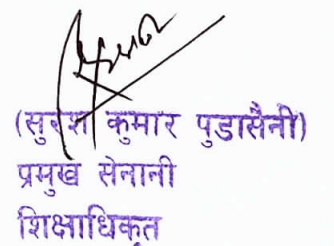 (सुरेश कुमार पुडासैनी)
प्रमुख सेनानी
शिक्षाधिकृत